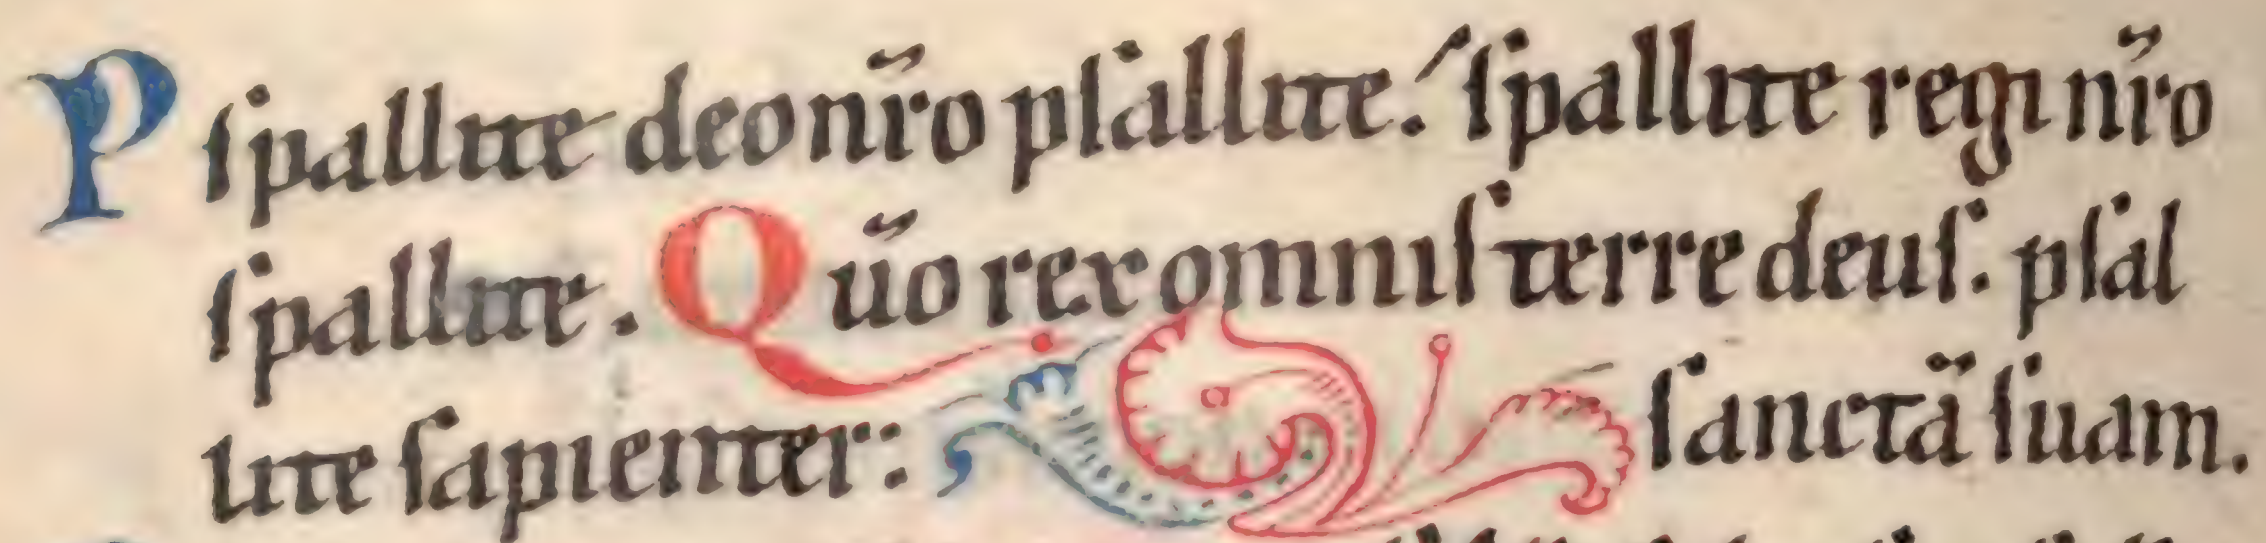 Pſpallite deo nr̃o pſallite. ſpallite regi nr̃o
ſpallite. Qũo rex omniſ terre deuſ. pſal
lite ſapienter: ſanctã ſuam.